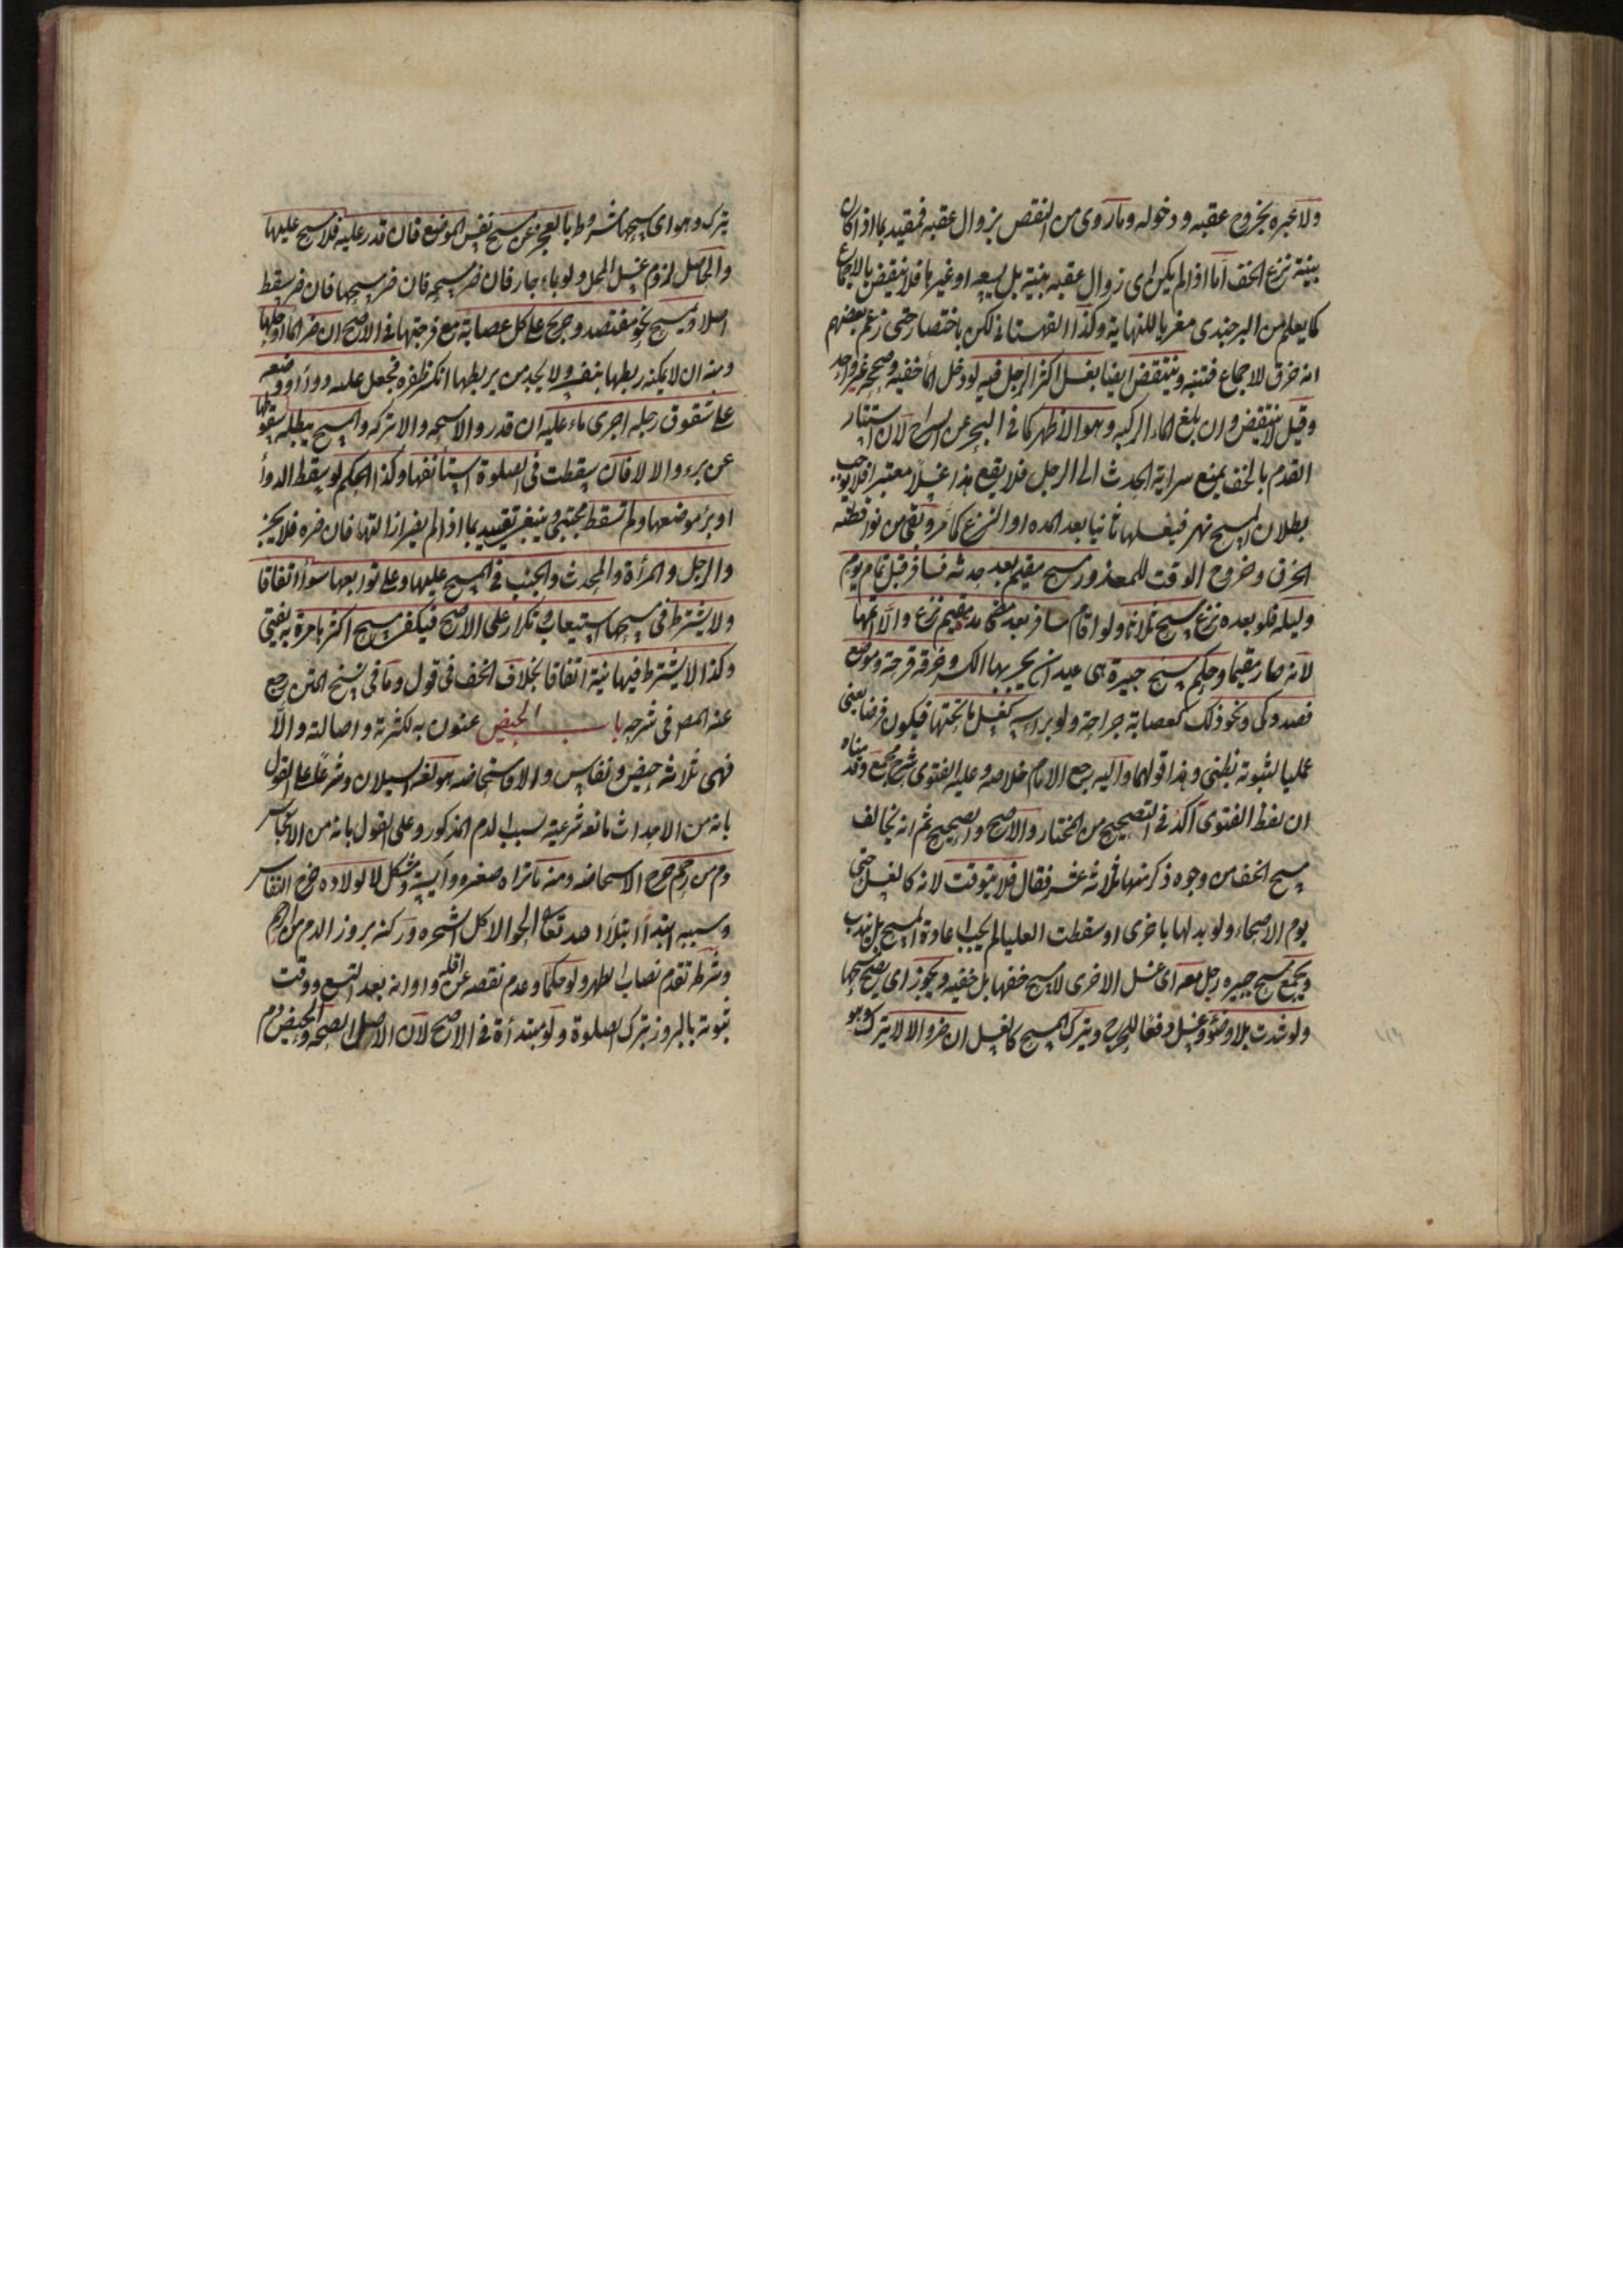 ولا عبره بخروج عقبه ودخوله وما روى من النقض بزوال عقبه فمقيد بما اذا كان
بنية نزع الخف اما اذا لم يكن اى زوال عقبه بنية بل لسعه او غيرها فلا ينقض بالاجماع
كما يعلم من البرجندى مغريا للنهاية وكذا القهستانى لكن باختصار حتى زعم بعضهم
انه خرق للاجماع فتنبه وينتقض ايضا بغسل اكثر الرجل فيه لو دخل الماء خفيه وصححه غير واحد
وقيل لا ينتقض وان بلغ الماء الركبه وهو الاظهر كما فى البحر عن السراج لان استتار
القدم بالخف يمنع سراية الحدث الى الرجل فلا يقع هذا غسلا معتبرا فلا يوجب
بطلان المسح نهر فيغسلها ثانيا بعد المده او النزع كما مر وبقى من نواقضه
الخرق وخروج الوقت للمعذور مسح مقيم بعد حدثه فسافر قبل تمام يوم
وليله فلو بعده نزع مسح ثلاثا ولو اقام مسافر بعد مضى مدة مقيم نزع والا اتمها
لانه صار مقيما وحكم مسح جبيرة هى عيدان يجبر بها الكسر وخرقة قرحة وموضع
فصد وكى ونحو ذلك كعصابة جراحة ولو براسه كغسل ما تحتها فيكون فرضا يعنى
عمليا لثبوته بظنى وهذا قولهما واليه رجع الامام خلاصه وعليه الفتوى شرح مجمع وقدمناه
ان لفظ الفتوى اكد فى التصحيح من المختار والاصح والصحيح ثم انه يخالف
مسح الخف من وجوه ذكر منها ثلاثة عشر فقال فلا يتوقت لانه كالغسل حتى
يوم الاصحاء ولو بدلها باخرى او سقطت العليا لم يجب اعادة المسح بل يندب
ويجمع مسح جبيره رجل معه اى غسل الاخرى لا مسح خفها بل خفيه ويجوز اى يصح مسحها
ولو شدت بلا وضوء وغسل دفعا للحرج ويترك المسح كالغسل ان ضر والا لا يترك وهو
يترك وهو اى مسحها مشروط بالعجز عن مسح نفس الموضع فان قدر عليه فلا مسح عليها
والحاصل لزوم غسل المحل ولو بماء حار فان ضر مسحه فان ضر مسحها فان ضر سقط
اصلا ويمسح نحو مفتصد وجريح على كل عصابة مع فرجتها فى الاصح ان ضر الماء او حلها
ومنه ان لا يمكنه ربطها بنفسه ولا يجد من يربطها انكسر ظفره فجعل عليه دواء او وضعه
على شقوق رجله اجرى ماء عليه ان قدر والا مسحه والا تركه والمسح يبطله سقوطها
عن برء والا لا فان سقطت فى الصلوة استأنفها وكذا الحكم لو سقط الدواء
او برء موضعها ولم تسقط مجتبى وينبغى تقييده بما اذا لم يضر ازالتها فان ضره فلا بحر
والرجل والمرأة والمحدث والجنب فى المسح عليها وعلى توابعها سواء اتفاقا
ولا يشترط فى مسحها استيعاب وتكرار على الاصح فيكفى مسح اكثرها مرة به يفتى
وكذا لا يشترط فيها نية اتفاقا بخلاف الخف فى قول وما فى نسخ المتن رجع
عنه المص فى شرحه باب الحيض عنون به لكثرته واصالته والا
فهى ثلاثه حيض ونفاس واستحاضه هو لغه السيلان وشرعا على القول
بانه من الاحداث مانعه شرعية بسبب الدم المذكور وعلى القول بانه من الانجاس
دم من رحم خرج الاستحاضه ومنه ما تراه صغيره وآيسة ومشكل لا لولاده خرج النفاس
وسببه ابتداء ابتلاء الله تعالى لحوا لاكل الشجره وركنه بروز الدم من الرحم
وشرطه تقدم نصاب الطهر ولو حكما وعدم نقصه عن اقله واوانه بعد التسع ووقت
ثبوته بالبروز بترك الصلوة ولو مبتدأة فى الاصح لان الاصل الصحه والحيض دم